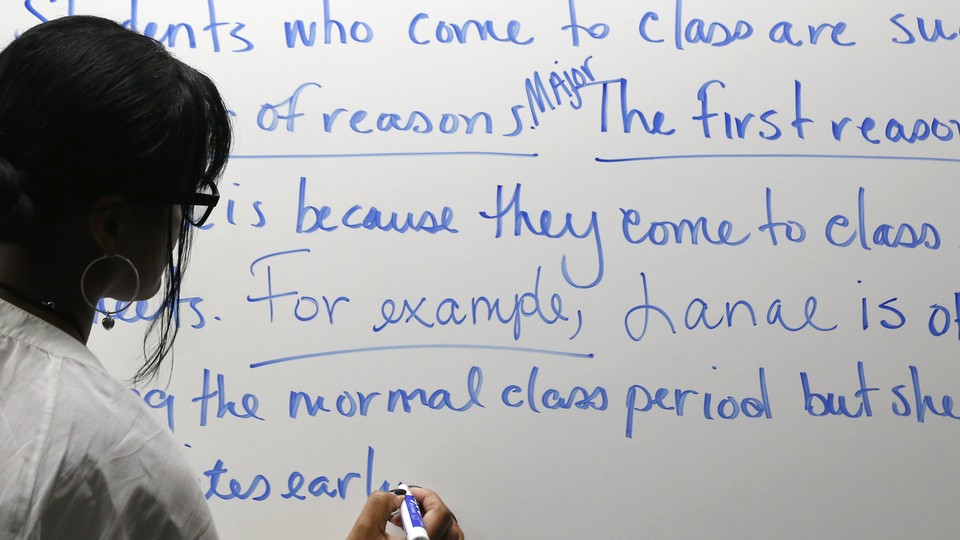 Students who come to class are
of reasons. Major The first
is because they come to class
For example, Lanae is
the normal class period but she
early